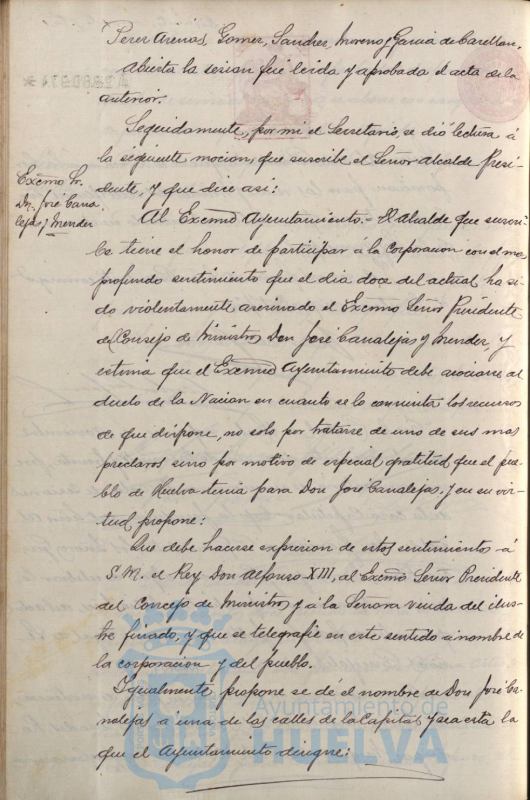 Perez Arenas, Gomez, Sanchez, Moreno y Garcia de Castellan.
Abierta la sesion fué leida y aprobada el acta de la
anterior.
Seguidamente, por mi el Secretario, se dió lectura á
la siguiente mocion, que suscribe el Señor Alcalde Presi-
dente, y que dice asi:
Excmo Sr.
Dn. José Cana
lejas y Mendez
Al Excmo Ayuntamiento.- El Alcalde que suscri-
be tiene el honor de participar á la Corporacion con el mas
profundo sentimiento que el dia doce del actual ha si-
do violentamente asesinado el Excmo Señor Presidente
del Consejo de Ministros Don José Canalejas y Mendez, y
estima que el Excmo Ayuntamiento debe asociarse al
duelo de la Nacion en cuanto se lo consienta los recursos
de que dispone, no solo por tratarse de uno de sus mas
preclaros sino por motivo de especial gratitud que el pue-
blo de Huelva tenia para Don José Canalejas, y en su vir-
tud propone:
Que debe hacerse expresion de estos sentimientos á
S. M. el Rey Don Alfonso XIII, al Excmo Señor Presidente
del Concejo de Ministros y á la Señora viuda del ilus-
tre finado, y que se telegrafie en este sentido á nombre de
la corporacion y del pueblo.
Igualmente propone se dé el nombre de Don José Ca-
nalejas á una de las calles de la Capital y sea esta la
que el Ayuntamiento designe:
Ayuntamiento de
HUELVA